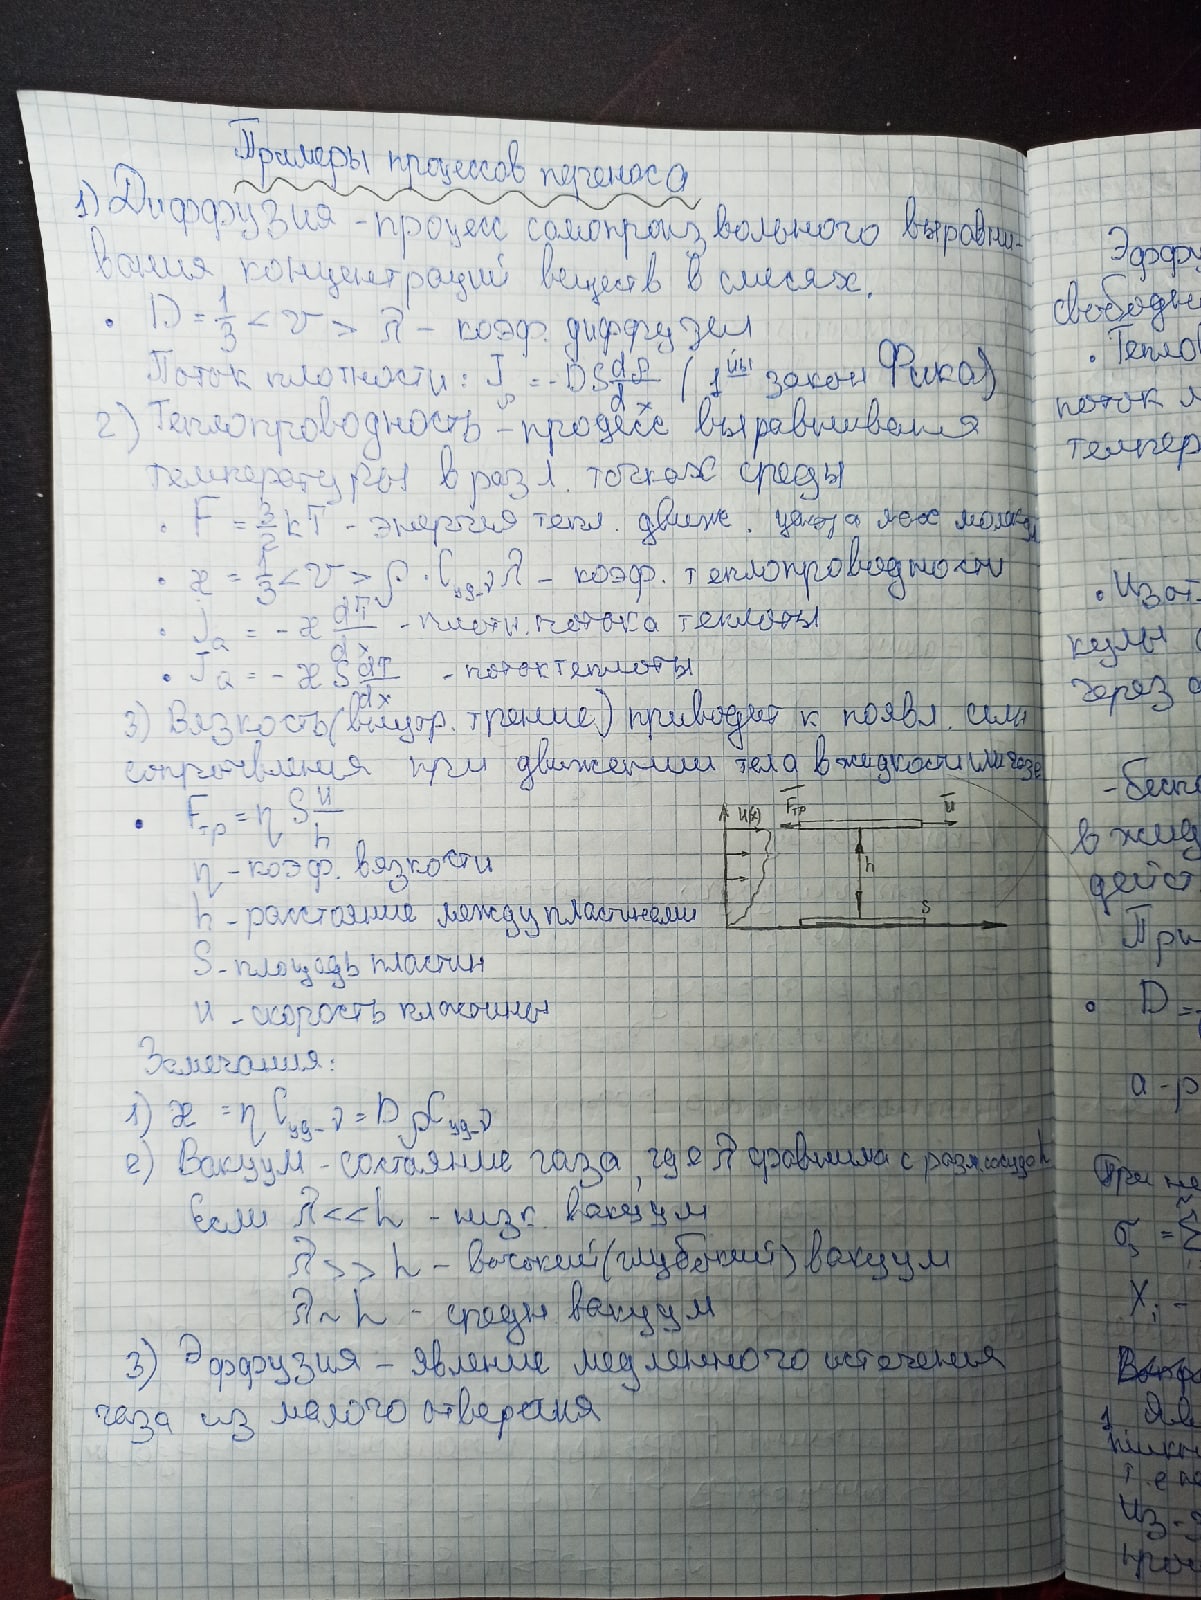 Примеры процессов переноса
1) Диффузия - процесс самопроизвольного выравни-
вания концентраций веществ в смесях.
• D = 1/3 <v> λ - коэф. диффузии
Поток плотности: J_ρ = -DS dρ/dx (1ый закон Фика)
2) Теплопроводность - процесс выравнивания
температуры в разл. точках среды
• E = 3/2 kT - энергия тепл. движ.
• æ = 1/3 <v> ρ · C_уд-V λ - коэф. теплопроводности
• j_Q = - æ dT/dx - плотн. потока теплоты
• J_Q = - æ S dT/dx - поток теплоты
3) Вязкость (внутр. трение) приводит к появл. силы
сопротивления при движении тела в жидкости или газе
• F_тр = η S u/h
η - коэф. вязкости
h - расстояние между пластинами
S - площадь пластин
u - скорость пластины
u(x) F_тр u
h
S
Замечания:
1) æ = η C_уд-V = D ρ C_уд-V
2) Вакуум - состояние газа, где λ сравнима с разм. сосуда h
Если λ << h - низк. вакуум
λ >> h - высокий (глубокий) вакуум
λ ~ h - средн вакуум
3) Эффузия - явление медленного истечения
газа из малого отверстия
Эффу
свободны
• Тепло
поток
темпер
• Из от
кулы
через
- беспо
в жид
дейст
При
• D =
a - р
При не
σ =
X_i -
1. Яв
т.е
Из-з